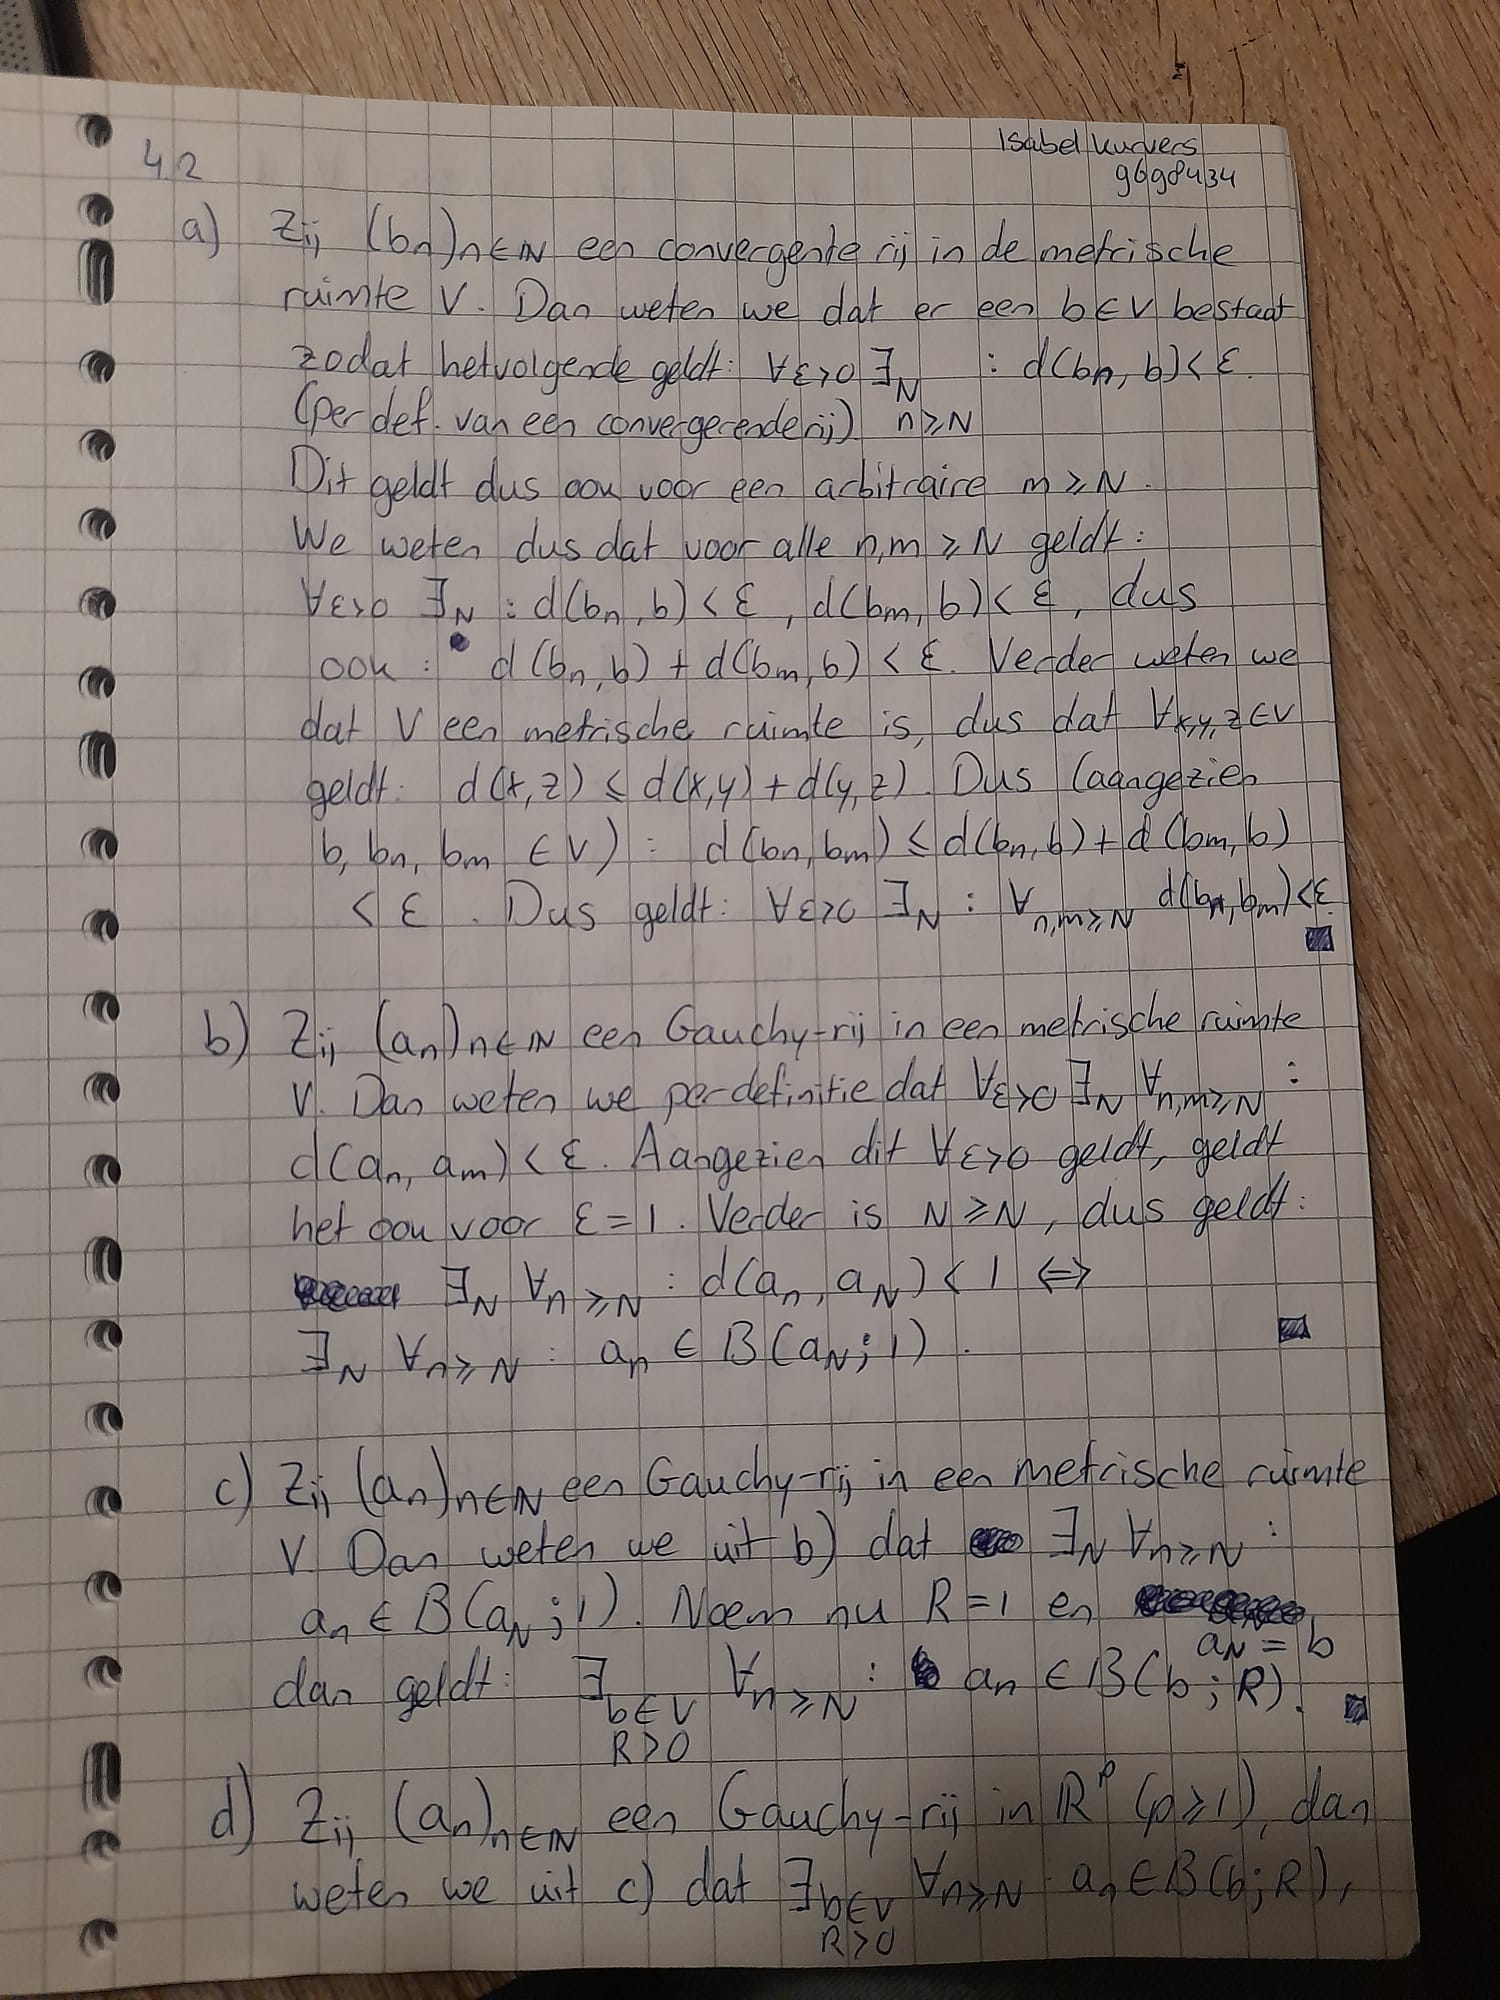 Isabel Kurvers
9698434
4.2
a) Zij (bn)n∈ℕ een convergente rij in de metrische
ruimte V. Dan weten we dat er een b∈V bestaat
zodat hetvolgende geldt: ∀ε>0 ∃N : d(bn, b)<ε.
(per def. van een convergerende rij) n≥N
Dit geldt dus ook voor een arbitraire m≥N.
We weten dus dat voor alle n,m ≥ N geldt:
∀ε>0 ∃N : d(bn, b)<ε, d(bm, b)<ε, dus
ook: d(bn, b) + d(bm, b) < ε. Verder weten we
dat V een metrische ruimte is, dus dat ∀x,y,z∈V
geldt: d(x,z) ≤ d(x,y)+d(y,z). Dus (aangezien
b, bn, bm ∈V) : d(bn, bm) ≤ d(bn, b)+d(bm, b)
< ε. Dus geldt: ∀ε>0 ∃N : ∀n,m≥N d(bn, bm)<ε.
b) Zij (an)n∈ℕ een Gauchy-rij in een metrische ruimte
V. Dan weten we per definitie dat ∀ε>0 ∃N ∀n,m≥N :
d(an, am)<ε. Aangezien dit ∀ε>0 geldt, geldt
het ook voor ε=1. Verder is N≥N, dus geldt:
∃N ∀n≥N : d(an, aN)<1 ⇔
∃N ∀n≥N : an ∈ B(aN;1).
c) Zij (an)n∈ℕ een Gauchy-rij in een metrische ruimte
V. Dan weten we uit b) dat ∃N ∀n≥N :
an∈B(aN;1). Noem nu R=1 en
aN = b
dan geldt: ∃ b∈V ∀n≥N : an ∈B(b;R).
R>0
d) Zij (an)n∈ℕ een Gauchy-rij in ℝᵖ (p≥1), dan
weten we uit c) dat ∃b∈V ∀n≥N : an∈B(b;R),
R>0